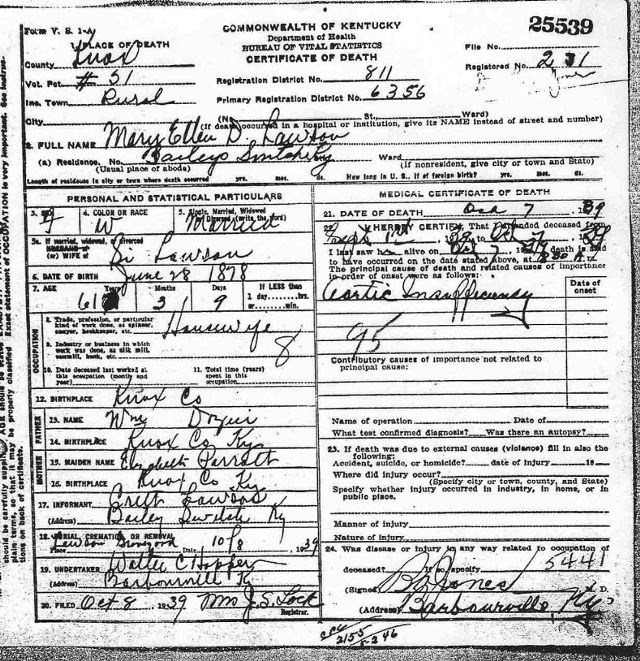 Form V. S. 1-A
COMMONWEALTH OF KENTUCKY
25539
Department of Health
BUREAU OF VITAL STATISTICS
CERTIFICATE OF DEATH
1 PLACE OF DEATH
County Knox
File No.
Registered No. 231
Vot. Pct. #31
Registration District No. 811
Inc. Town Rural
Primary Registration District No. 6356
City (No. St. Ward)
(If death occurred in a hospital or institution, give its NAME instead of street and number)
2 FULL NAME Mary Ellen D. Lawson
(a) Residence. No. Baileys Switch Ky Ward
(Usual place of abode) (If nonresident, give city or town and State)
Length of residence in city or town where death occurred yrs. mos. ds. How long in U. S., if of foreign birth? yrs. mos. ds.
PERSONAL AND STATISTICAL PARTICULARS
3. F 4. COLOR OR RACE W 5. Single, Married, Widowed or Divorced (write the word) Married
5a If married, widowed, or divorced
HUSBAND of
(or) WIFE of Lawson
6. DATE OF BIRTH June 28 1878
7. AGE 61 Months 3 Days 9 If LESS than
1 day......hrs.
or......min.
OCCUPATION
8. Trade, profession, or particular kind of work done, as spinner, sawyer, bookkeeper, etc. Housewife
9. Industry or business in which work was done, as silk mill, sawmill, bank, etc. 8
10. Date deceased last worked at this occupation (month and year)
11. Total time (years) spent in this occupation
12. BIRTHPLACE Knox Co
FATHER
13. NAME Wm Dozier
14. BIRTHPLACE Knox Co Ky
MOTHER
15. MAIDEN NAME Elizabeth Parrott
16. BIRTHPLACE Knox Co Ky
17. INFORMANT Lawson
(Address) Bailey Switch Ky
18. BURIAL, CREMATION, OR REMOVAL
Place Lawson Date 10/8 1939
19. UNDERTAKER Walter C Hopper
(Address) Barbourville Ky
20. FILED Oct 8 1939 Mrs J. S. Lock
Registrar.
MEDICAL CERTIFICATE OF DEATH
21. DATE OF DEATH Oct 7 39
22. I HEREBY CERTIFY, That I attended deceased from
I last saw her alive on Oct 7 death is said
to have occurred on the date stated above, at
The principal cause of death and related causes of importance
in order of onset were as follows:
Date of onset
Aortic Insufficiency
95
Contributory causes of importance not related to
principal cause:
Name of operation Date of
What test confirmed diagnosis? Was there an autopsy?
23. If death was due to external causes (violence) fill in also the
following:
Accident, suicide, or homicide? date of injury 19
Where did injury occur?
(Specify city or town, county, and State)
Specify whether injury occurred in industry, in home, or in
public place.
Manner of injury
Nature of injury
24. Was disease or injury in any way related to occupation of
deceased? If so, specify 5441
(Signed) Jones M. D.
(Address) Barbourville, Ky